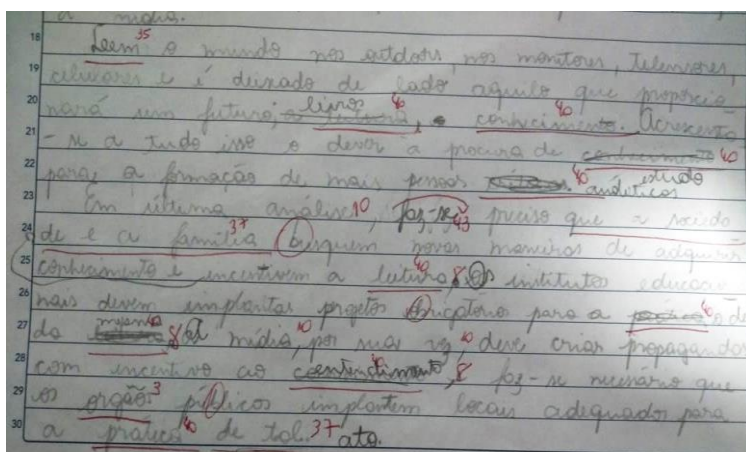 a mídia.
18 Leem 35 o mundo nos outdoors, nos monitores, televisores,
19 celulares e é deixado de lado aquilo que proporcio
20 nará um futuro, livros 40, conhecimento. 40 Acrescenta
21 -se a tudo isso o dever a procura de conhecimento 40
22 para a formação de mais pessoas 40 estudo analíticos
23 Em última análise 10, faz-se 43 preciso que a socieda
24 de e a família 37 busquem novas maneiras de adquirir
25 conhecimento e incentivem a leitura 40 8 Os institutos educacio
26 nais devem implantar projetos obrigatórios para a 40 de
27 da mesma 40 8 A mídia, 10 por sua vez, 10 deve criar propagandas
28 com incentivo ao 40, 8 faz-se necessário que
29 os orgãos 3 públicos implantem locais adequados para
30 a prática 40 de tal. 37 ato.